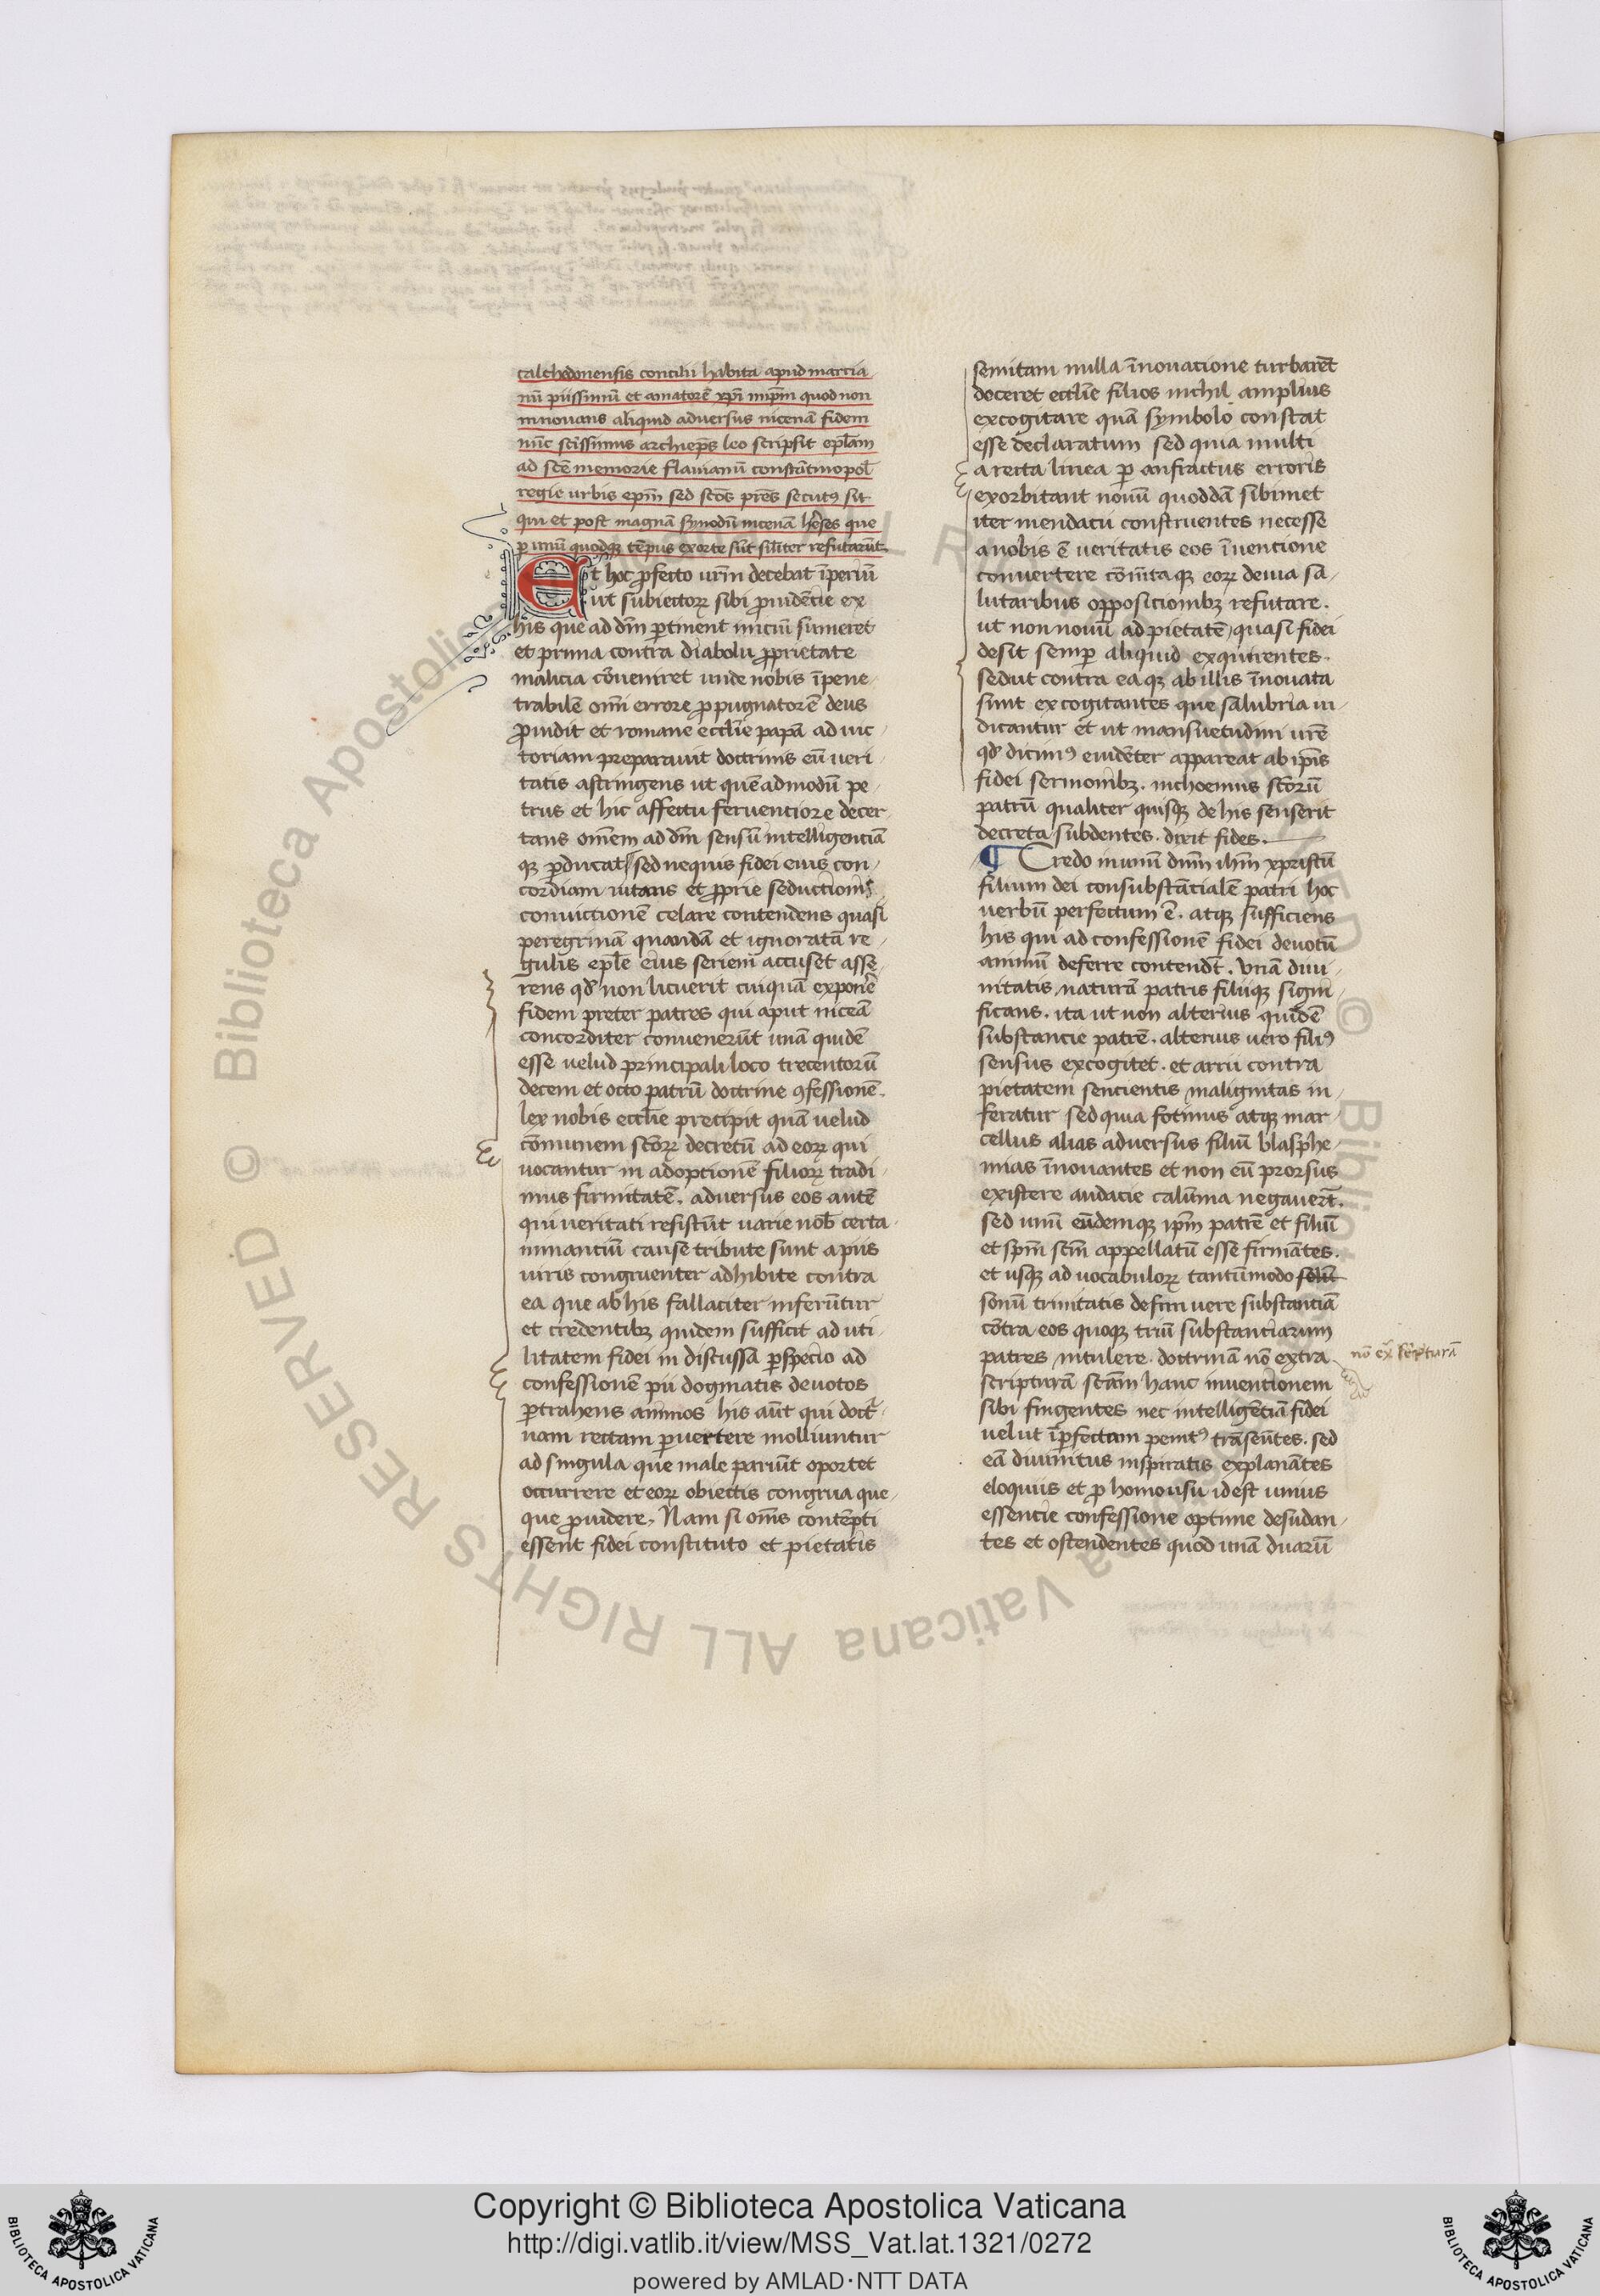 calchedonensis concilii habita apud marcia
nū piissimū et amatorē xp̄i imp̄m quod non
innouans aliquid aduersus nicenā fidem
nūc scīssimus archiep̄s leo scripsit epl̄am
ad scē memorie flauianū constātinopol̄
regie urbis ep̄m sed scōs prēs secutꝰ sit
qui et post magnā synodū nicenā hēses que
ꝑ unū quodqꝫ tēpus exorte sūt silīter refutarūt.
Et hoc ꝓfecto urm̄ decebat īperiū
ut subiectoꝝ sibi ꝓuidēcie ex
his que ad dm̄ ꝑtinent iniciū sumeret
et prima contra diaboli ꝓprietate
malicia cōueniret unde nobis īpene
trabilē om̄i errore ꝓpugnatorē deus
ꝓuidit et romane eccl̄ie papā ad uic
toriam preparauit doctrinis eū ueri
tatis astringens ut quēadmodū pe
trus et hic affectu feruentiore decer
tans om̄em ad dm̄ sensū intelligenciā
qꝫ ꝑducat sed nequis fidei eius con
cordiam uitans et ꝓprie seductionis
conuictionē celare contendens quasi
peregrinā quandā et ignoratā re
gulis epl̄e eius seriem accuset asse
rens qd̄ non licuerit cuiquā exponē
fidem preter patres qui aput niceā
concorditer conuenerūt unā quidē
esse uelud principali loco trecentorū
decem et octo patrū doctrine ꝯfessionē.
lex nobis eccl̄ie precipit quā uelud
cōmunem scōꝝ decretū ad eoꝝ qui
uocantur in adoptionē filioꝝ tradi
mus firmitatē. aduersus eos autē
qui ueritati resistūt uarie nob̄ certa
minanciū cause tribute sunt a piis
uiris congruenter adhibite contra
ea que ab his fallaciter inferūtur
et credentibꝫ quidem sufficit ad uti
litatem fidei in discussā ꝑspecio ad
confessionē pii dogmatis deuotos
ꝑtrahens animos his aūt qui doct̄ri
nam rectam ꝑuertere molliuntur
ad singula que male pariūt oportet
occurrere et eoꝝ obiectis congrua que
que ꝓuidere. Nam si om̄s contēpti
essent fidei constituto et pietatis
semitam nulla īnouacione turbarēt
doceret eccl̄ie filios nichil amplius
excogitare quā symbolo constat
esse declaratum sed quia multi
a recta linea ꝑ anfractus erroris
exorbitant nouū quoddā sibimet
iter mendacii construentes necesse
a nobis ē ueritatis eos īuencione
conuertere cōmētaqꝫ eoꝝ deuia sa
lutaribus opposicionibꝫ refutare.
ut non nouū ad pietatē quasi fidei
desit semꝑ aliquid exquirentes.
sed ut contra ea qꝫ ab illis īnouata
sunt excogitantes que salubria iu
dicantur et ut mansuetudini urē
qd̄ dicimꝰ euidēter appareat ab ip̄is
fidei sermonibꝫ. inchoemus scōrū
patrū qualiter quisqꝫ de his senserit
decreta subdentes. dixit fides.
¶ Credo in unū dn̄m ihm̄ xpristū
filium dei consubstācialē patri hoc
uerbū perfectum ē. atqꝫ sufficiens
his qui ad confessionē fidei deuotū
animū deferre contendt̄. Vnā diui
nitatis naturā patris filiiqꝫ signi
ficans. ita ut non alterius quidē
substancie patrē. alterius uero filiꝰ
sensus excogitet. et arrii contra
pietatem sencientis malignitas in
feratur sed quia fotinus atqꝫ mar
cellus alias aduersus filiū blasphe
mias īnouantes et non eū prorsus
existere audacie calūnia negauert̄.
sed unū eūdemqꝫ ip̄m patrē et filiū
et sp̄m scm̄ appellatū esse firmātes.
et usqꝫ ad uocabuloꝝ tantūmodo solū
sonū trinitatis definiuere substantiā
cōtra eos quoqꝫ triū substanciarum
patres intulere. doctrinā nō extra
scripturā scām hanc inuentionem
sibi fingentes nec intelligētiā fidei
uelut īꝑfectam penitꝰ trāseūtes. sed
eā diuinitus inspiratis explanātes
eloquiis et ꝓ homousii idest unius
essencie confessione optime desudan
tes et ostendentes quod unā duarū
nō ex̄ scripturā
Copyright © Biblioteca Apostolica Vaticana
http://digi.vatlib.it/view/MSS_Vat.lat.1321/0272
powered by AMLAD·NTT DATA
BIBLIOTECA APOSTOLICA VATICANA
BIBLIOTECA APOSTOLICA VATICANA
© Biblioteca Apostolica Vaticana ALL RIGHTS RESERVED